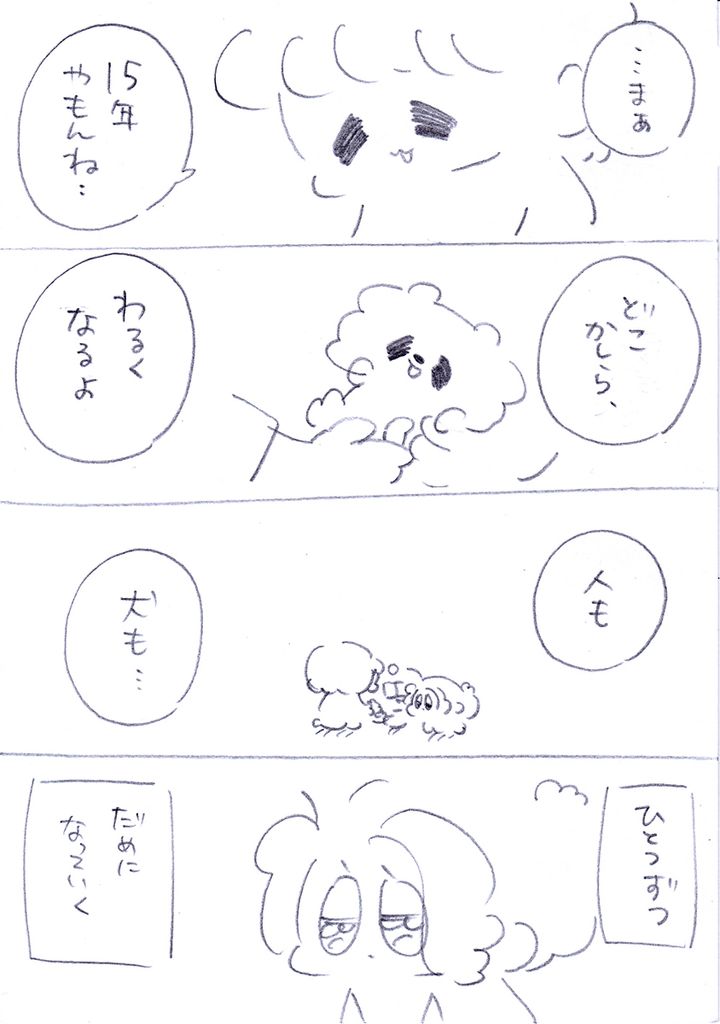 …まぁ
15年
やもんね…
どこ
かしら、
わるく
なるよ
人も
犬も…
ひとつずつ
だめに
なっていく